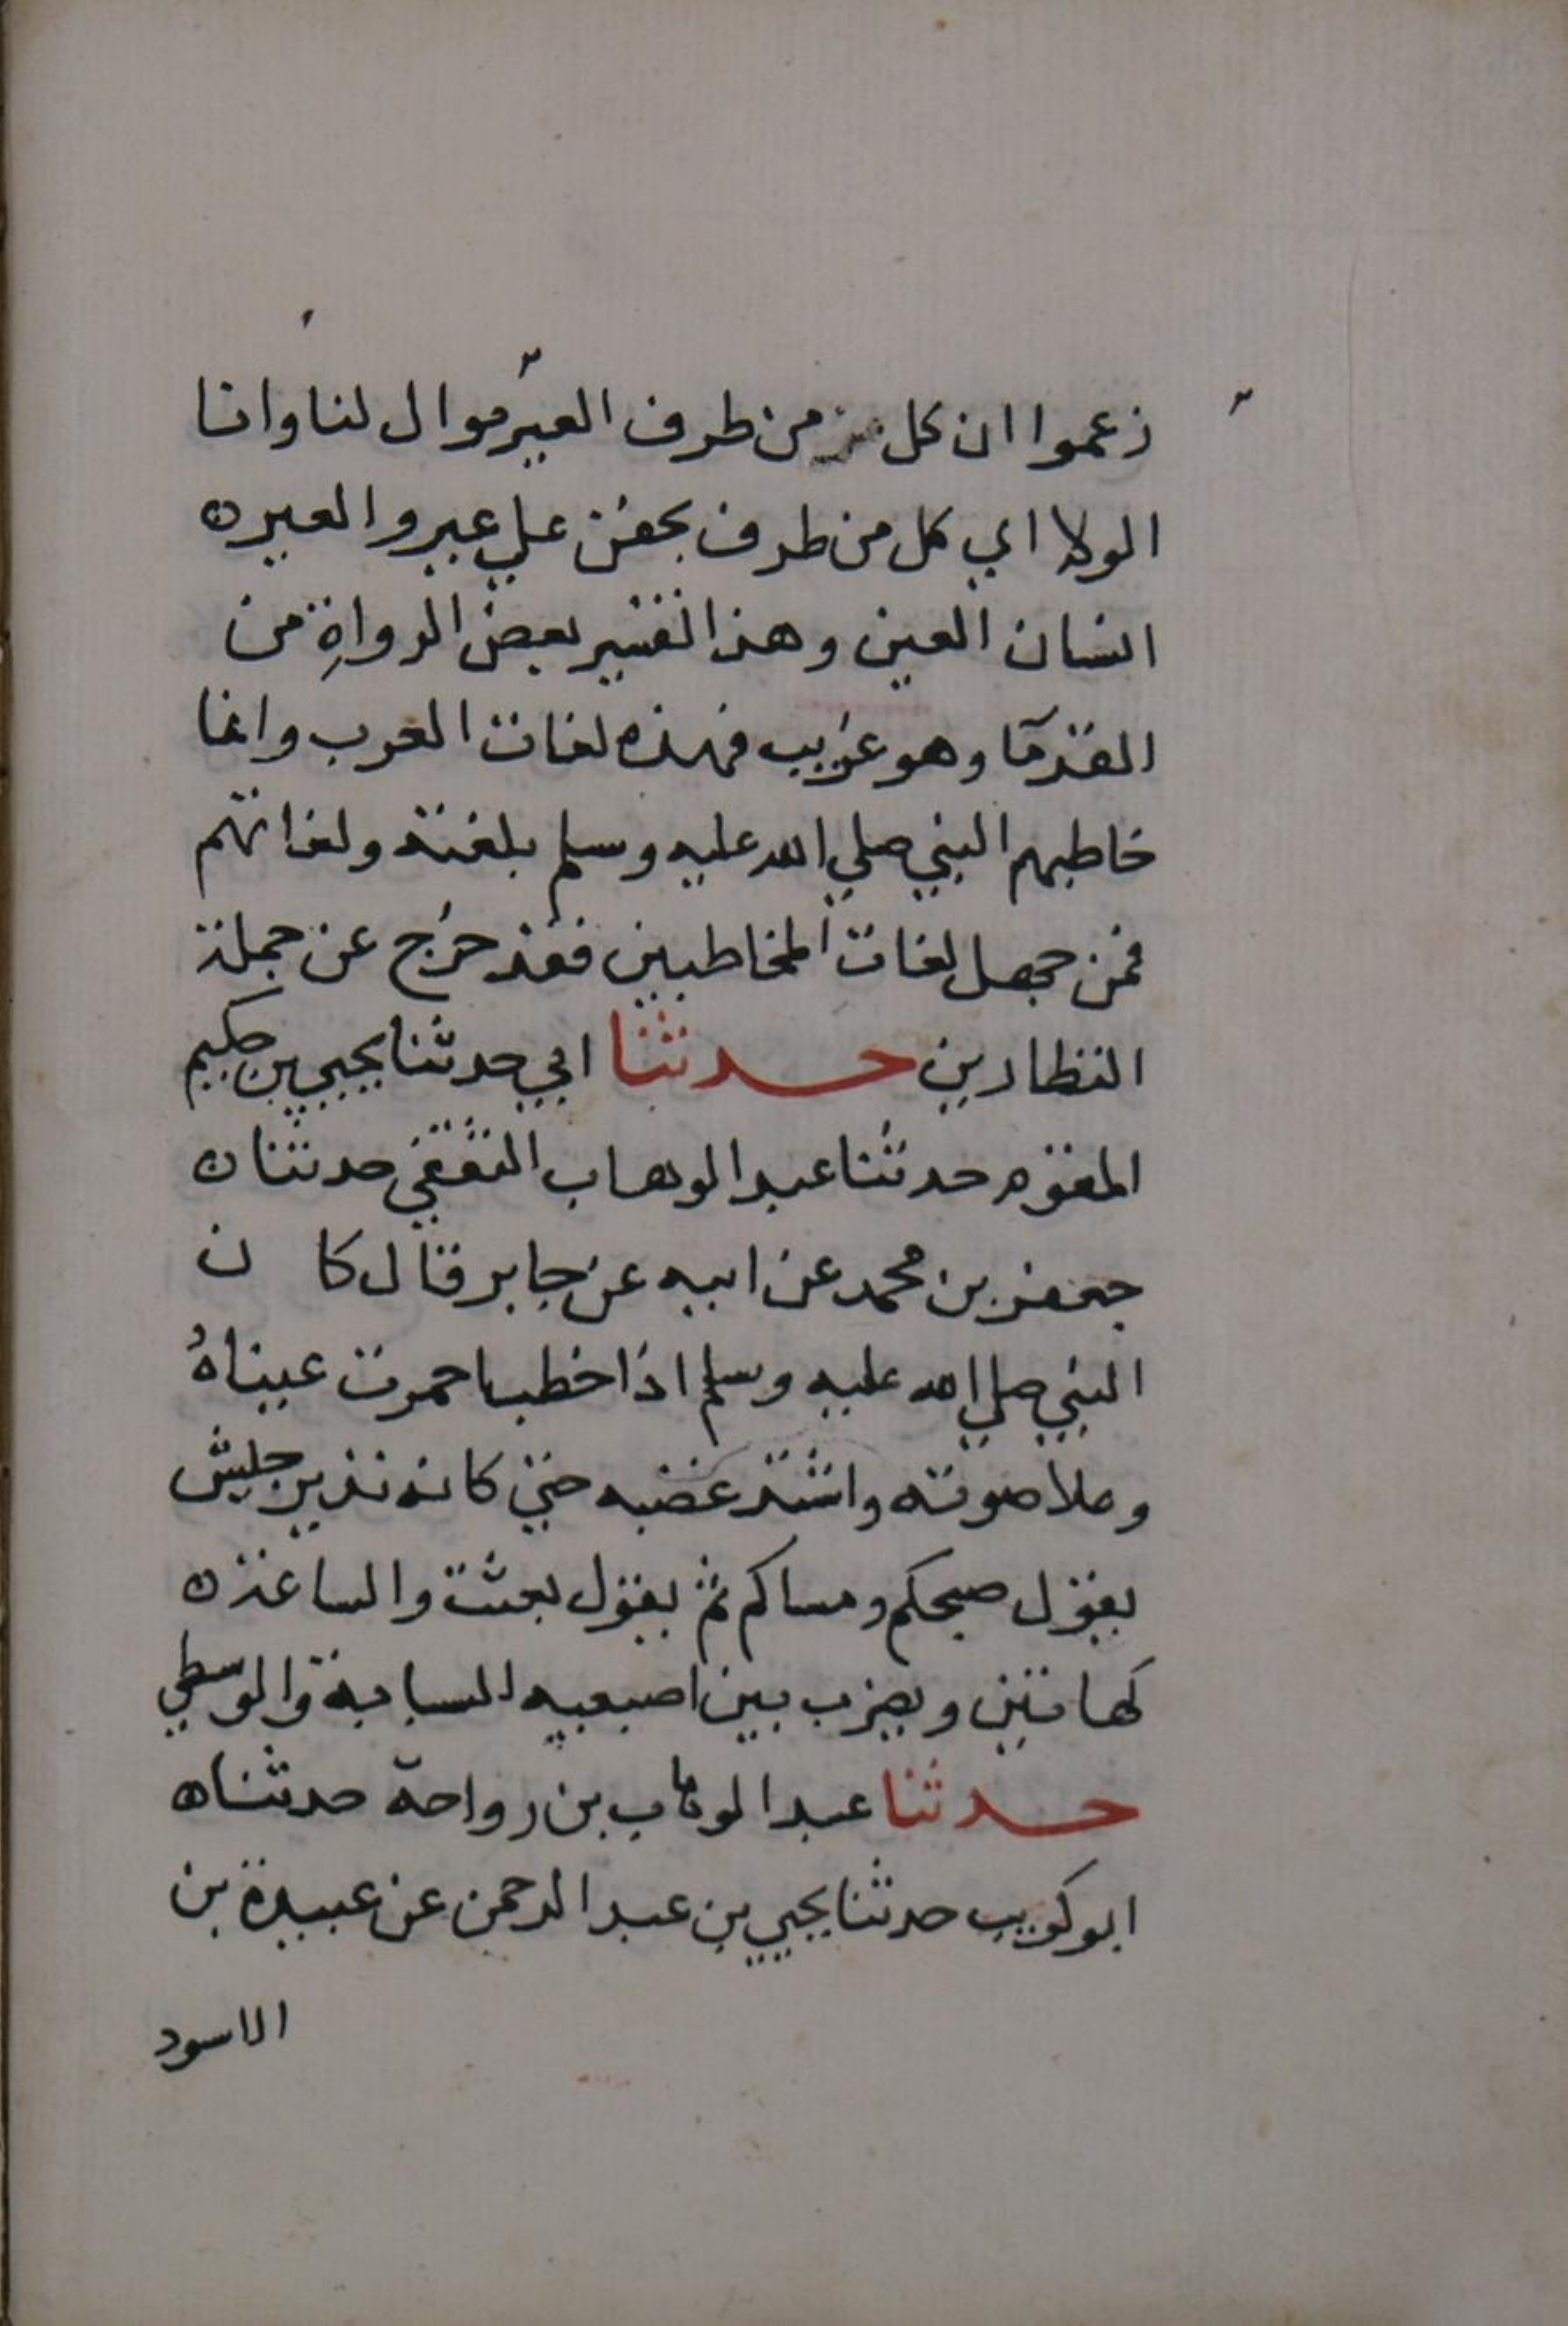 زعموا ان كل من طرف العير موال لنا وانا
الولا اي كل من طرف بجفن علي عير والعير ه
انسان العين وهذا تفسير بعض الرواة من
القدما وهو غريب فهذه لغات العرب وانما
خاطبهم النبي صلي الله عليه وسلم بلغته ولغاتهم
فمن جهل لغات المخاطبين فقد خرج عن جملة
النظارين حدثنا ابي حدثنا يحيي بن حكيم
المقوم حدثنا عبد الوهاب الثقفي حدثنا ه
جعفر بن محمد عن ابيه عن جابر قال كا ن
النبي صلي الله عليه وسلم اذا خطب احمرت عيناهُ
وعلا صوته واشتد غضبه حتي كانه نذير جيش
يقول صبحكم ومساكم ثم يقول بعثت والساعة ه
كهاتين ويضرب بين اصبعيه السبابة والوسطي
حدثنا عبد الوهاب بن رواحة حدثنا ه
ابو كريب حدثنا يحيي بن عبد الرحمن عن عبيدة بن
الاسود